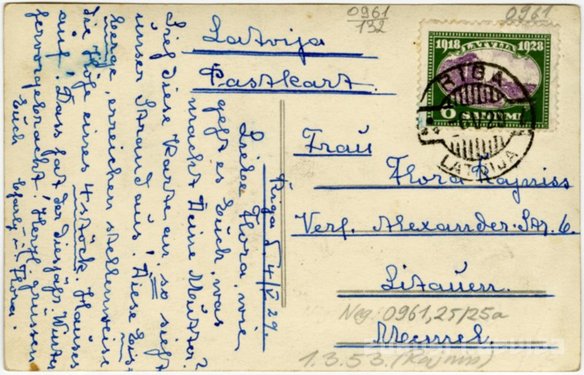 0961
132
0961
1918 LATVIJA 1928
6 SANTIMI
RIGA
LATVIJA
Latvija
Postkart.
Riga d. 4/V. 29.
Liebe Flora, wie
geht es Euch, was
macht Deine Mutter?
Sieh diese Karte an, so sieht
unser Strand aus! Diese Eis-
berge, erreichen stellenweise
die Höhe eines 4 stöck. Hauses
auf! Dass hat der diesjähr. Winter
hervorgebracht! Herzl. grüssen
Euch
Flora.
Frau
Flora Rajniss
Verl. Alexander-Str. 6.
Litauen.
Memel.
Neg: 0961,25/25a
1.3.53. (Rajnis)